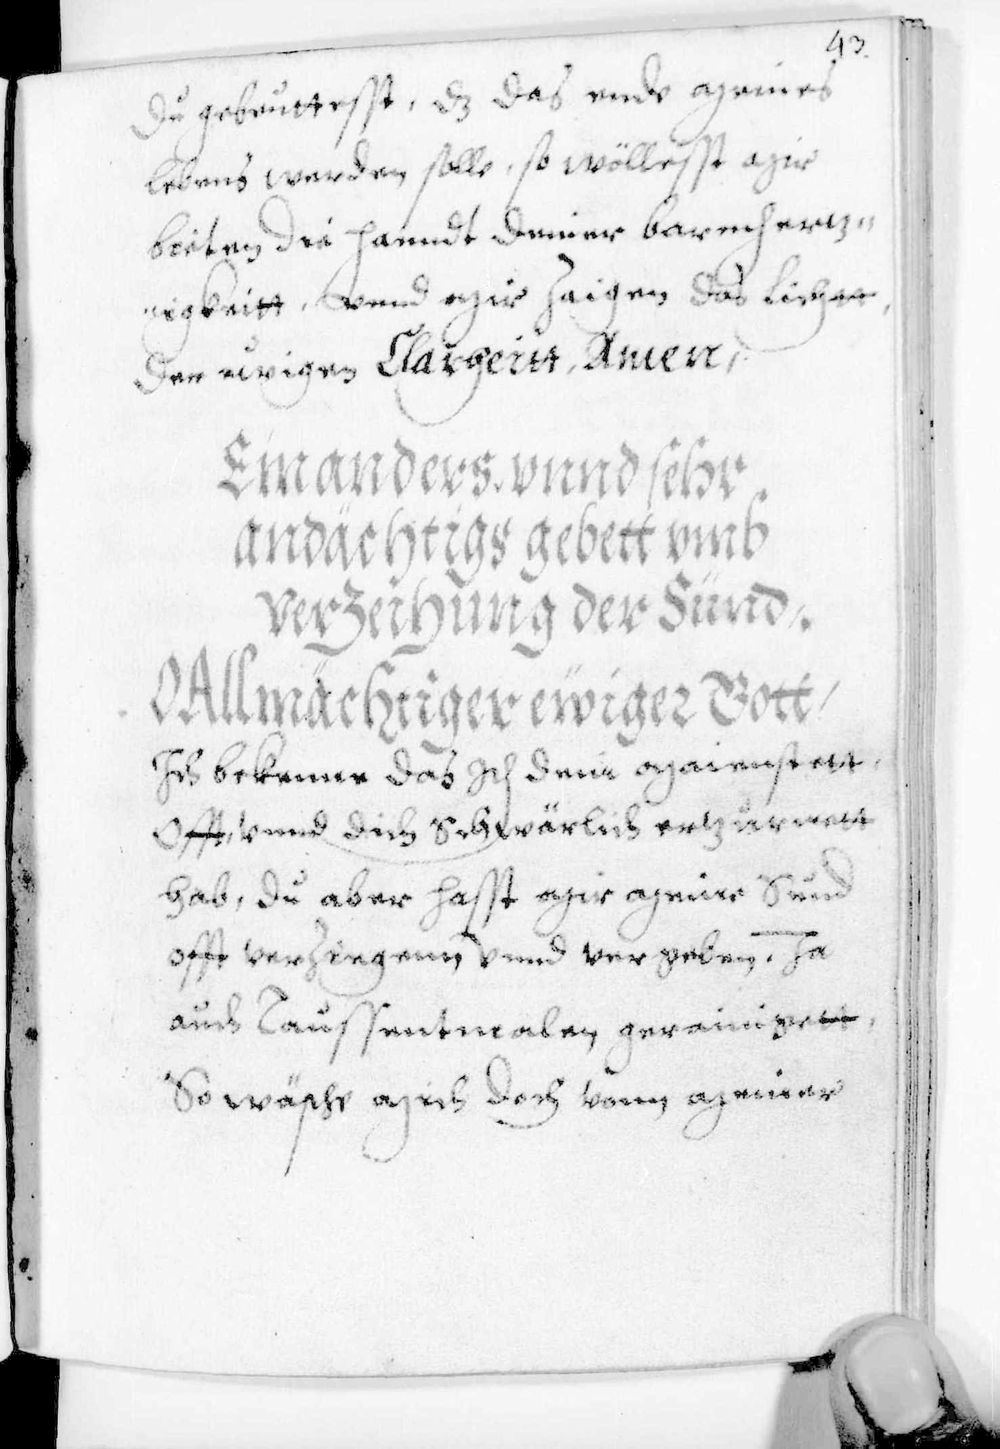 43.
du gebeuttesst, dz das ende meines
lebens werden solle, so wöllesst mir
bieten die hanndt deiner barmhertz„
„igkeitt, vnnd mir zaigen das liecht,
der ewigen Clarheitt, Amen,
Ein anders. vnnd sehr
andächtigs gebett vmb
verzeihung der Sünd,.
O Allmächtiger ewiger Gott,
Ich bekenne das Ich dein maienstett,
Offt, vnnd dich Schwärlich ertzürnett
hab, du aber hasst mir meine Sünd
offt verzigenn vnnd vergeben. Ja
auch Taussentmalen gerainigett,
So wäsche mich doch vonn meiner